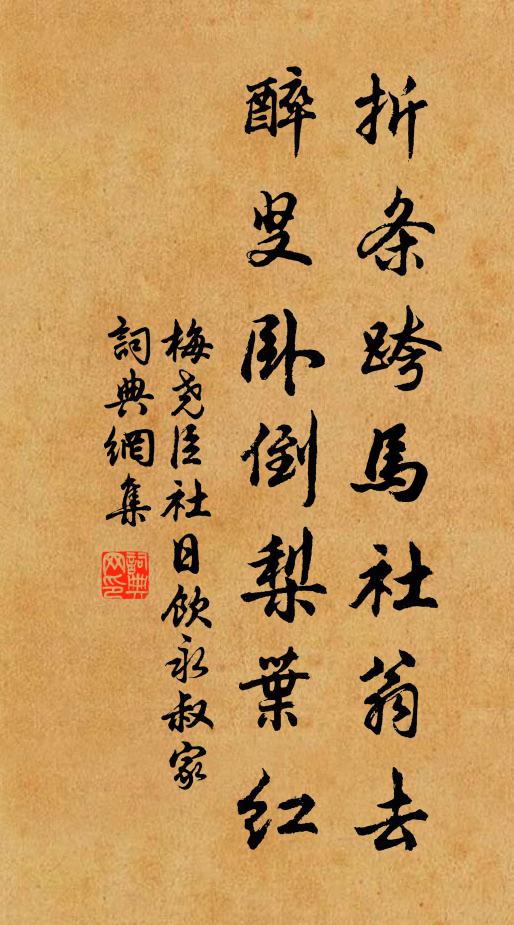 折条跨馬社翁去
醉叟卧倒梨葉红
梅尧臣社日飲永叔家
詞典網集
詞典网印